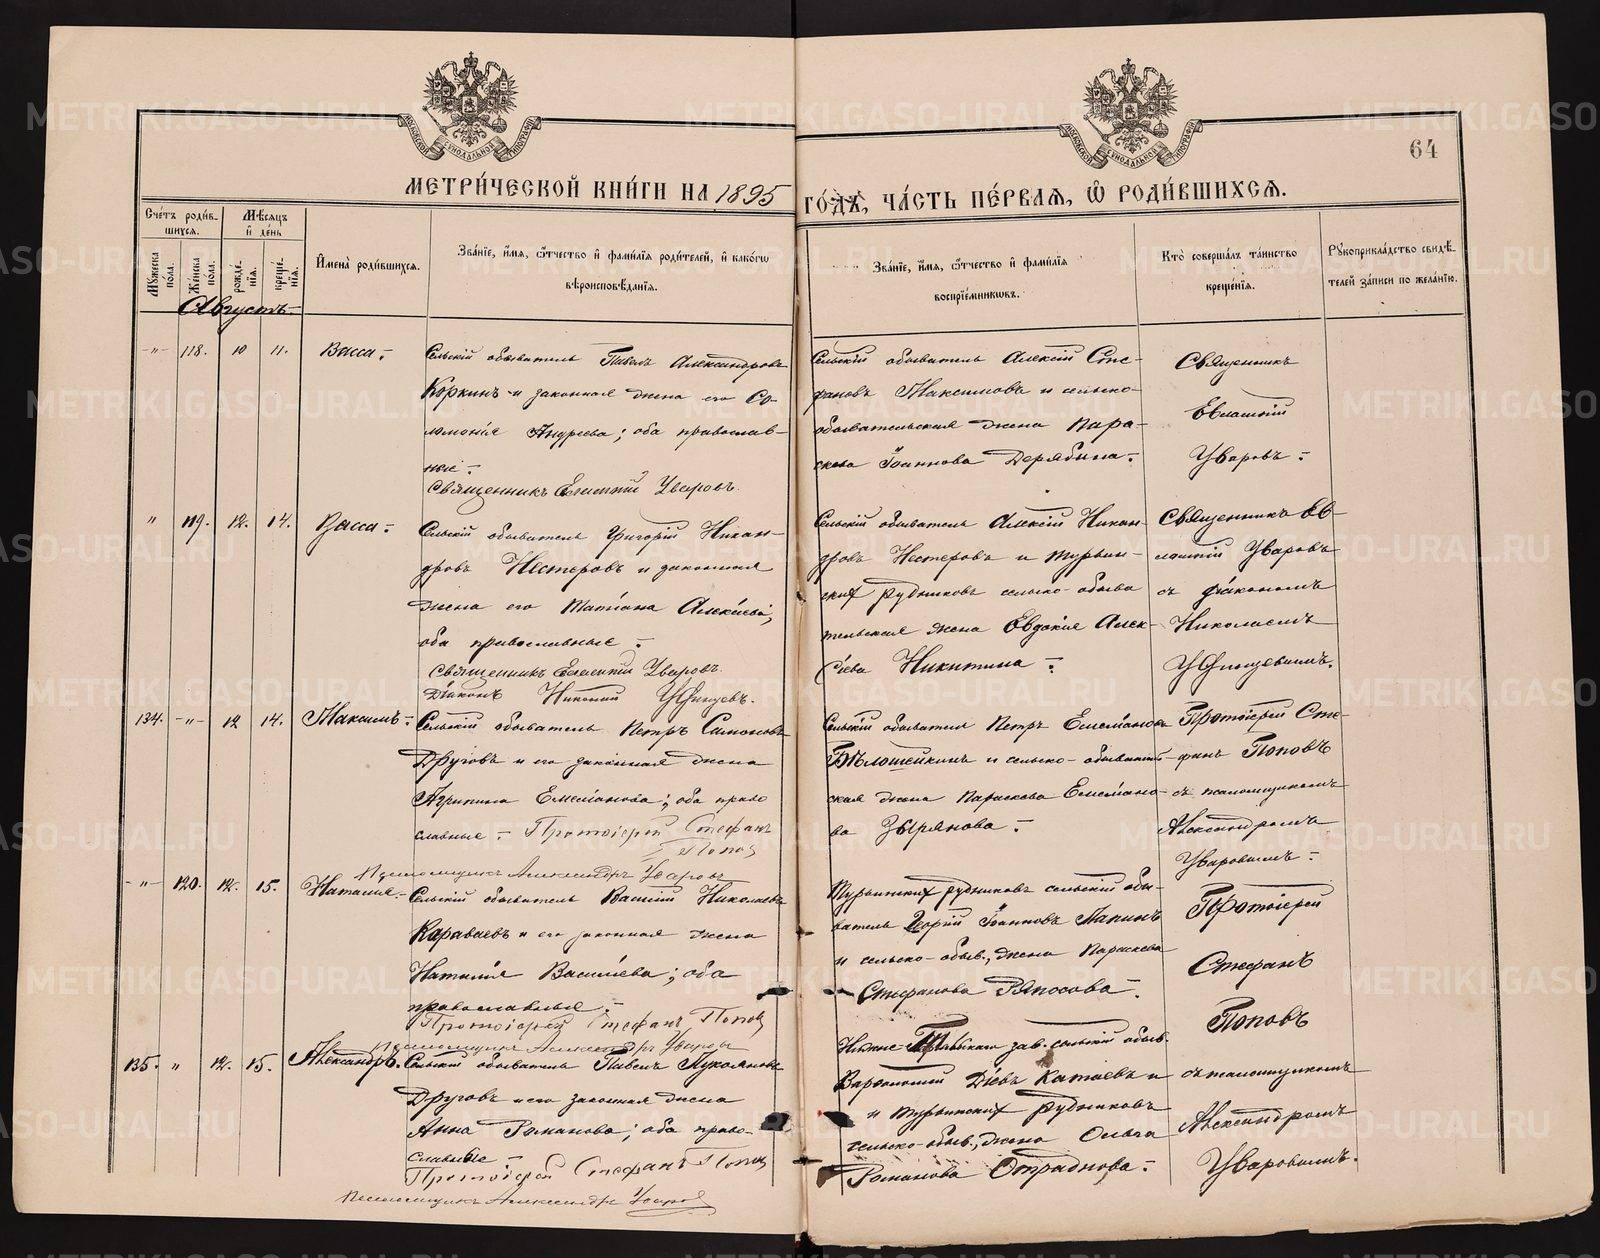 МЕТРИ́ЧЕСКОЙ КНИ́ГИ НА 1895 ГО́ДЪ, ЧА́СТЬ ПЕ́РВАЯ, Ѽ РОДИ́ВШИХСЯ.
64
МОСКОВСКОЙ СѴНОДАЛЬНОЙ ТИПОГРАФІИ
МОСКОВСКОЙ СѴНОДАЛЬНОЙ ТИПОГРАФІИ
Сче́тъ роди́в-
шихся.
Мѣ́сяцъ
и҆ де́нь
Му́жеска по́ла.
Же́нска по́ла.
рожде́нїя.
креще́нїя.
И҆мена̀ роди́вшихся.
Зва́нїе, и҆́мя, ѻ҆́тчество и҆ фами́лїя роди́телей, и҆ како́гѡ
вѣроисповѣ́данїя.
Зва́нїе, и҆́мя, ѻ҆́тчество и҆ фами́лїя
воспрїе́мникѡвъ.
Кто̀ соверша́лъ та́инство
креще́нїя.
Рꙋкоприкла́дство свидѣ́-
телей за́писи по жела́нїю.
Августъ
-"- 118. 10 11. Васса.
Сельскій обыватель Павелъ Александровъ
Коркинъ и законная жена его Со-
ломонія Андреева; оба православ-
ные.
Священникъ Евлампій Уваровъ.
Сельскій обыватель Алексій Сте-
фановъ Максимовъ и сельско-
обывательская жена Пара-
скева Іоаннова Дерябина.
Священникъ
Евлампій
Уваровъ.
" 119. 12. 14. Васса.
Сельскій обыватель Григорій Никан-
дровъ Нестеровъ и законная
жена его Татіана Алексіева;
оба православные.
Священникъ Евлампій Уваровъ
Діаконъ Николай
Сельскій обыватель Алексій Никан-
дровъ Нестеровъ и Турьин-
скихъ рудниковъ сельско-обыва
тельская жена Евдокія Алек-
сіева Никитина.
Священникъ Ев-
лампій Уваровъ
съ діакономъ
Николаемъ
134. -"- 12 14. Максимъ.
Сельскій обыватель Петръ Симоновъ
Друговъ и его законная жена
Агрипина Емеліанова; оба право
славные. Протоіерей Стефанъ
Поповъ
Псаломщикъ Александръ Уваровъ
Сельскій обыватель Петръ Емеліановъ
Бѣлошейкинъ и сельско-обыват-
ская жена Параскева Емеліано-
ва Зырянова.
Протоіерей Сте-
фанъ Поповъ
съ псаломщикомъ
Александромъ
Уваровымъ.
-"- 120. 12. 15. Наталія.
Сельскій обыватель Василій Николаевъ
Караваевъ и его законная жена
Наталія Василіева; оба
православные.
Протоіерей Стефанъ Поповъ
Псаломщикъ Александръ Уваровъ
Турьинскихъ рудниковъ сельскій обы-
ватель Георгій Іоанновъ Папинъ
и сельско-обыв., жена Параскева
Стефанова Ряпосова.
Протоіерей
Стефанъ
Поповъ
135. " 12. 15. Александръ.
Сельскій обыватель Павелъ Лукояновъ
Друговъ и его законная жена
Анна Романова; оба право-
славные
Протоіерей Стефанъ Поповъ
Псаломщикъ Александръ Уваровъ
зав. сельскій обыв.
Варфоломей Діевъ Катаевъ и
и Турьинскихъ рудниковъ
сельско-обыв., жена Ольга
Романова Отраднова.
съ псаломщикомъ
Александромъ
Уваровымъ.
METRIKI.GASO-URAL.RU